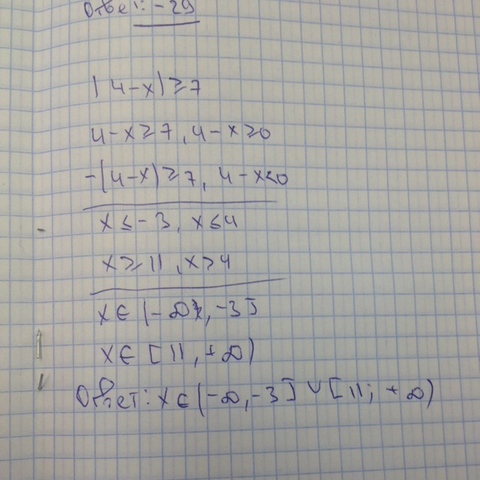 Ответ: -29
|4-x|≥7
4-x≥7, 4-x≥0
-(4-x)≥7, 4-x<0
x≤-3, x≤4
x≥11, x>4
x∈(-∞, -3]
x∈[11, +∞)
Ответ: x∈(-∞, -3]∪[11; +∞)